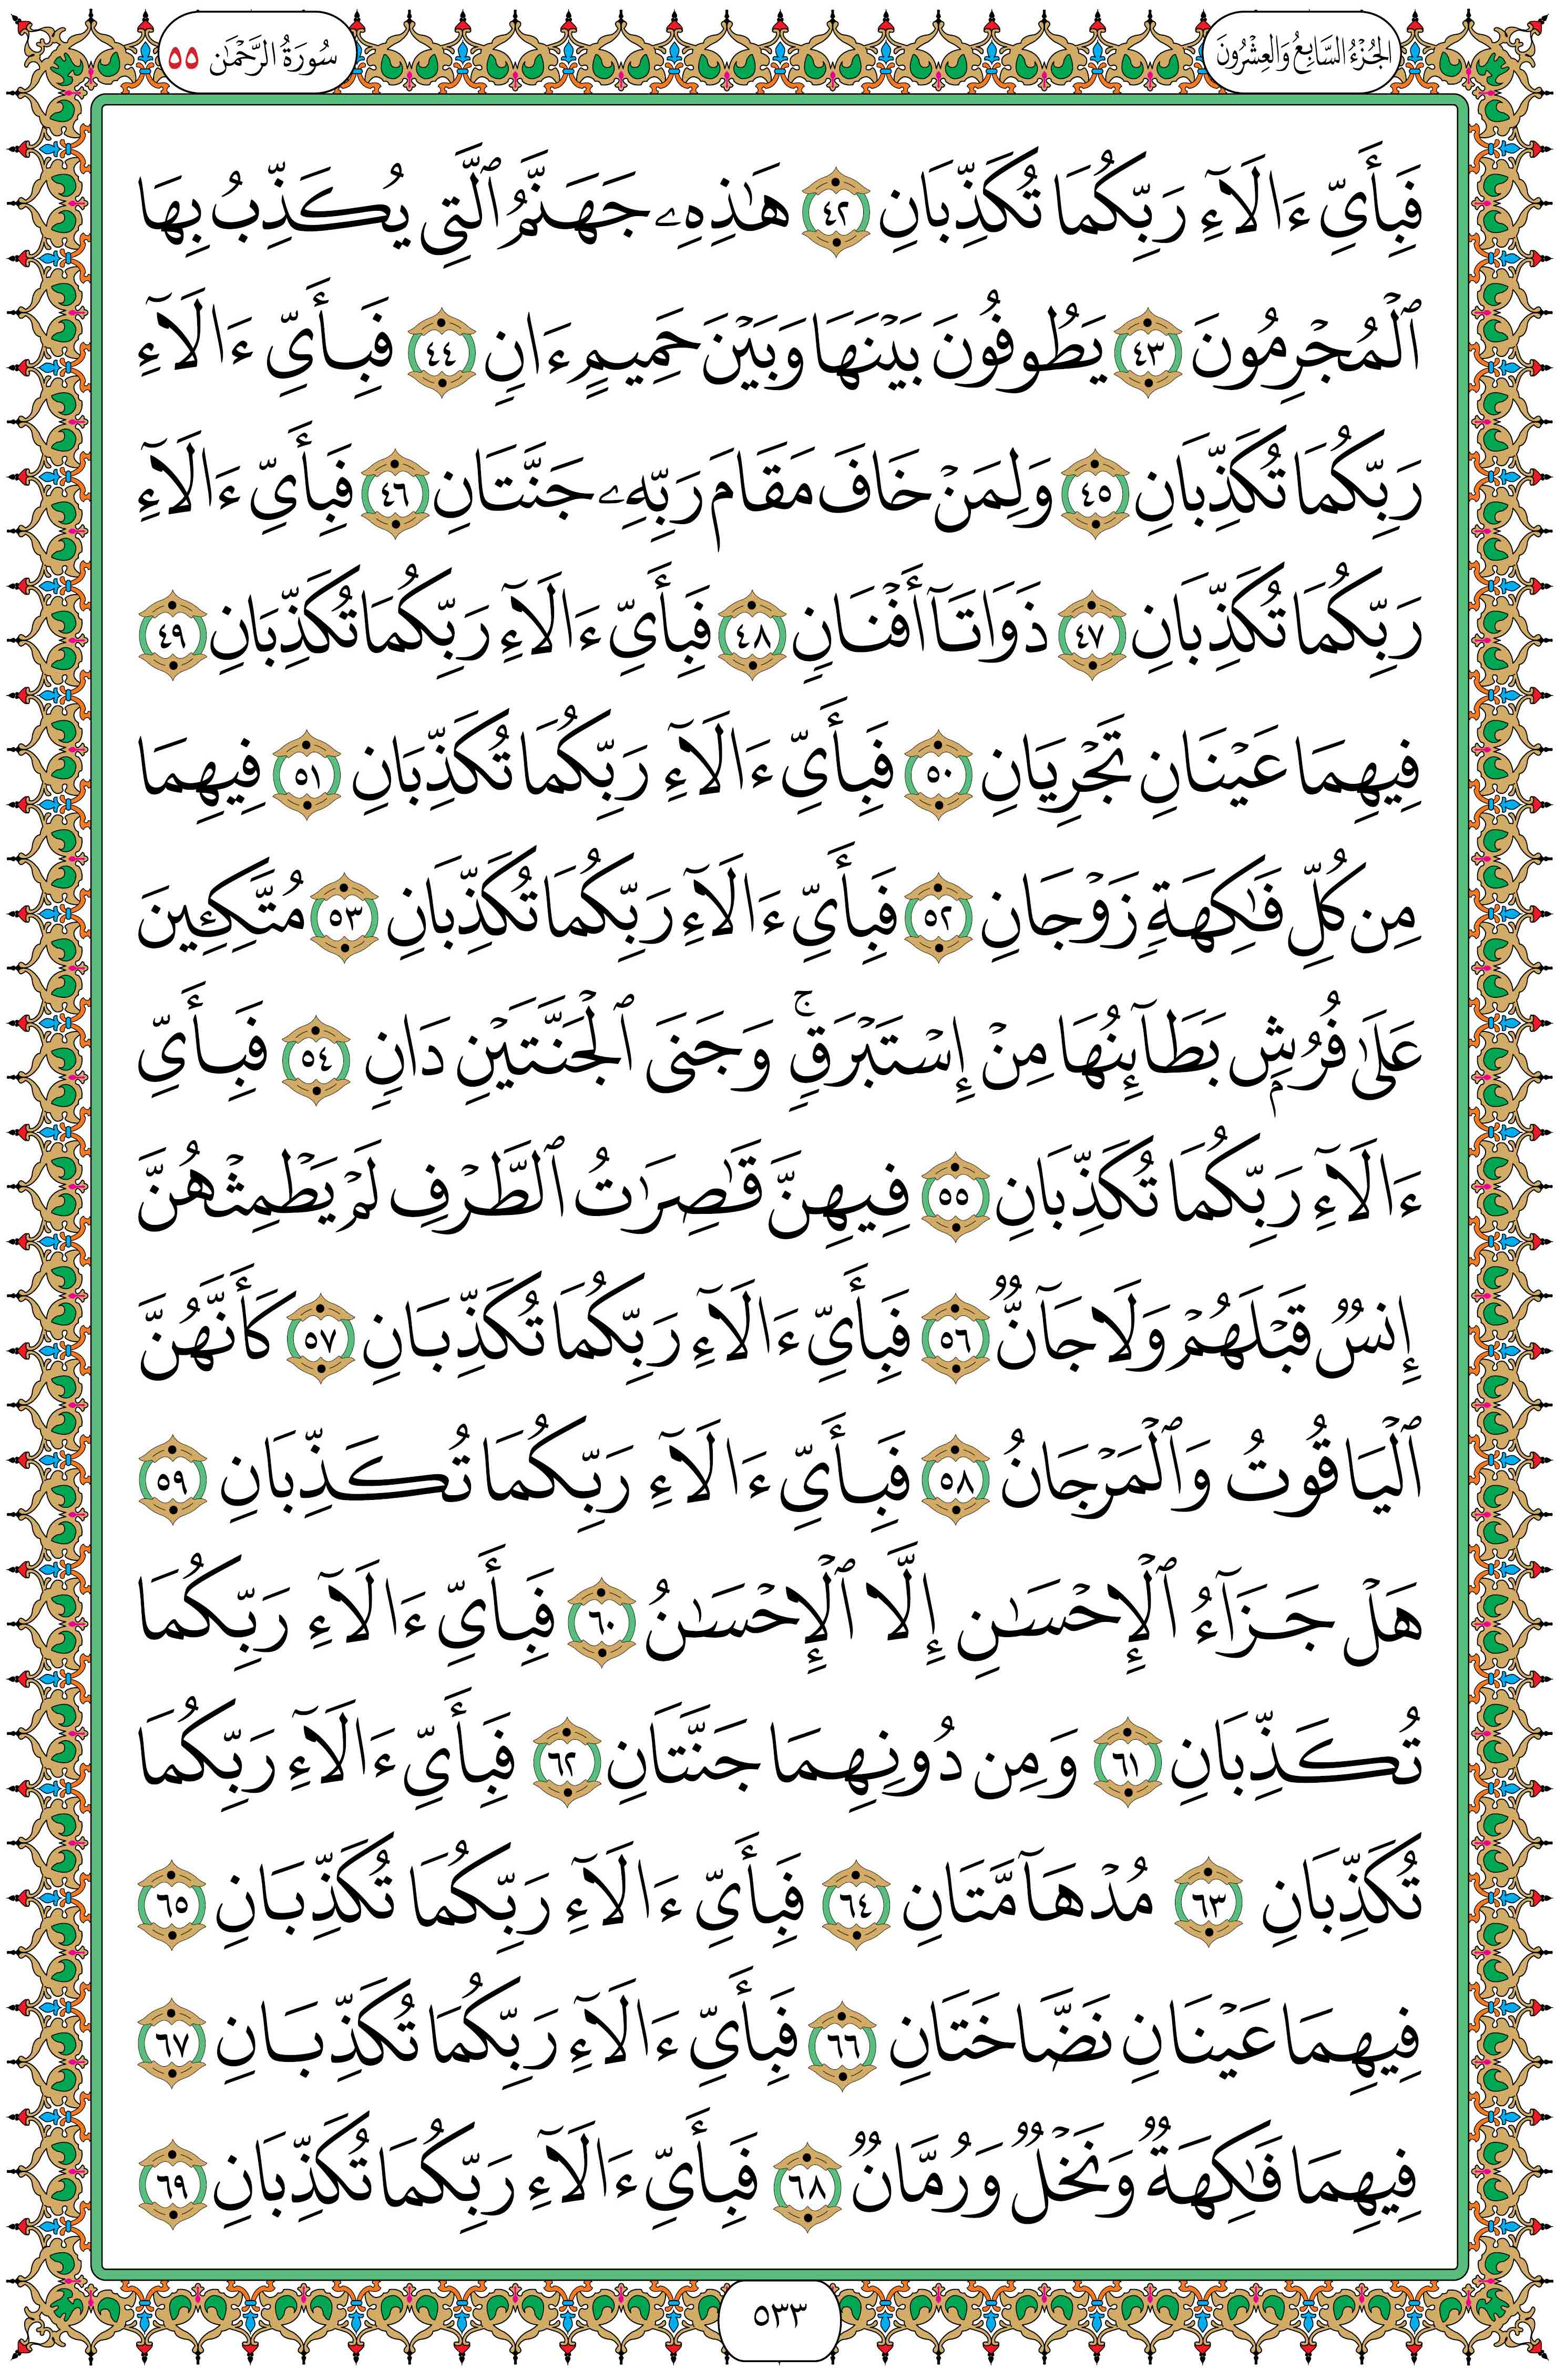 الجُزْءُ السَّابِعُ وَالعِشْرُونَ
سُورَةُ الرَّحْمَٰن ٥٥
فَبِأَيِّ ءَالَآءِ رَبِّكُمَا تُكَذِّبَانِ ٤٢ هَٰذِهِۦ جَهَنَّمُ ٱلَّتِي يُكَذِّبُ بِهَا
ٱلْمُجْرِمُونَ ٤٣ يَطُوفُونَ بَيْنَهَا وَبَيْنَ حَمِيمٍ ءَانٍ ٤٤ فَبِأَيِّ ءَالَآءِ
رَبِّكُمَا تُكَذِّبَانِ ٤٥ وَلِمَنْ خَافَ مَقَامَ رَبِّهِۦ جَنَّتَانِ ٤٦ فَبِأَيِّ ءَالَآءِ
رَبِّكُمَا تُكَذِّبَانِ ٤٧ ذَوَاتَآ أَفْنَانٍ ٤٨ فَبِأَيِّ ءَالَآءِ رَبِّكُمَا تُكَذِّبَانِ ٤٩
فِيهِمَا عَيْنَانِ تَجْرِيَانِ ٥٠ فَبِأَيِّ ءَالَآءِ رَبِّكُمَا تُكَذِّبَانِ ٥١ فِيهِمَا
مِن كُلِّ فَٰكِهَةٍ زَوْجَانِ ٥٢ فَبِأَيِّ ءَالَآءِ رَبِّكُمَا تُكَذِّبَانِ ٥٣ مُتَّكِـِٔينَ
عَلَىٰ فُرُشٍۭ بَطَآئِنُهَا مِنْ إِسْتَبْرَقٍ ۚ وَجَنَى ٱلْجَنَّتَيْنِ دَانٍ ٥٤ فَبِأَيِّ
ءَالَآءِ رَبِّكُمَا تُكَذِّبَانِ ٥٥ فِيهِنَّ قَٰصِرَٰتُ ٱلطَّرْفِ لَمْ يَطْمِثْهُنَّ
إِنسٌ قَبْلَهُمْ وَلَا جَآنٌّ ٥٦ فَبِأَيِّ ءَالَآءِ رَبِّكُمَا تُكَذِّبَانِ ٥٧ كَأَنَّهُنَّ
ٱلْيَاقُوتُ وَٱلْمَرْجَانُ ٥٨ فَبِأَيِّ ءَالَآءِ رَبِّكُمَا تُكَذِّبَانِ ٥٩
هَلْ جَزَآءُ ٱلْإِحْسَٰنِ إِلَّا ٱلْإِحْسَٰنُ ٦٠ فَبِأَيِّ ءَالَآءِ رَبِّكُمَا
تُكَذِّبَانِ ٦١ وَمِن دُونِهِمَا جَنَّتَانِ ٦٢ فَبِأَيِّ ءَالَآءِ رَبِّكُمَا
تُكَذِّبَانِ ٦٣ مُدْهَآمَّتَانِ ٦٤ فَبِأَيِّ ءَالَآءِ رَبِّكُمَا تُكَذِّبَانِ ٦٥
فِيهِمَا عَيْنَانِ نَضَّاخَتَانِ ٦٦ فَبِأَيِّ ءَالَآءِ رَبِّكُمَا تُكَذِّبَانِ ٦٧
فِيهِمَا فَٰكِهَةٌ وَنَخْلٌ وَرُمَّانٌ ٦٨ فَبِأَيِّ ءَالَآءِ رَبِّكُمَا تُكَذِّبَانِ ٦٩
٥٣٣